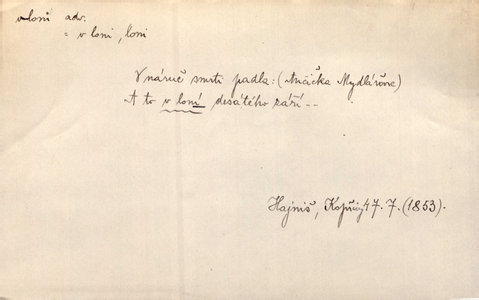 vloni adv.
= v loni, loni
V náruč smrti padla: (Ančička Mydlářova)
A to v loni desátého září --
Hajniš, Kopřivy 47. 7. (1853).